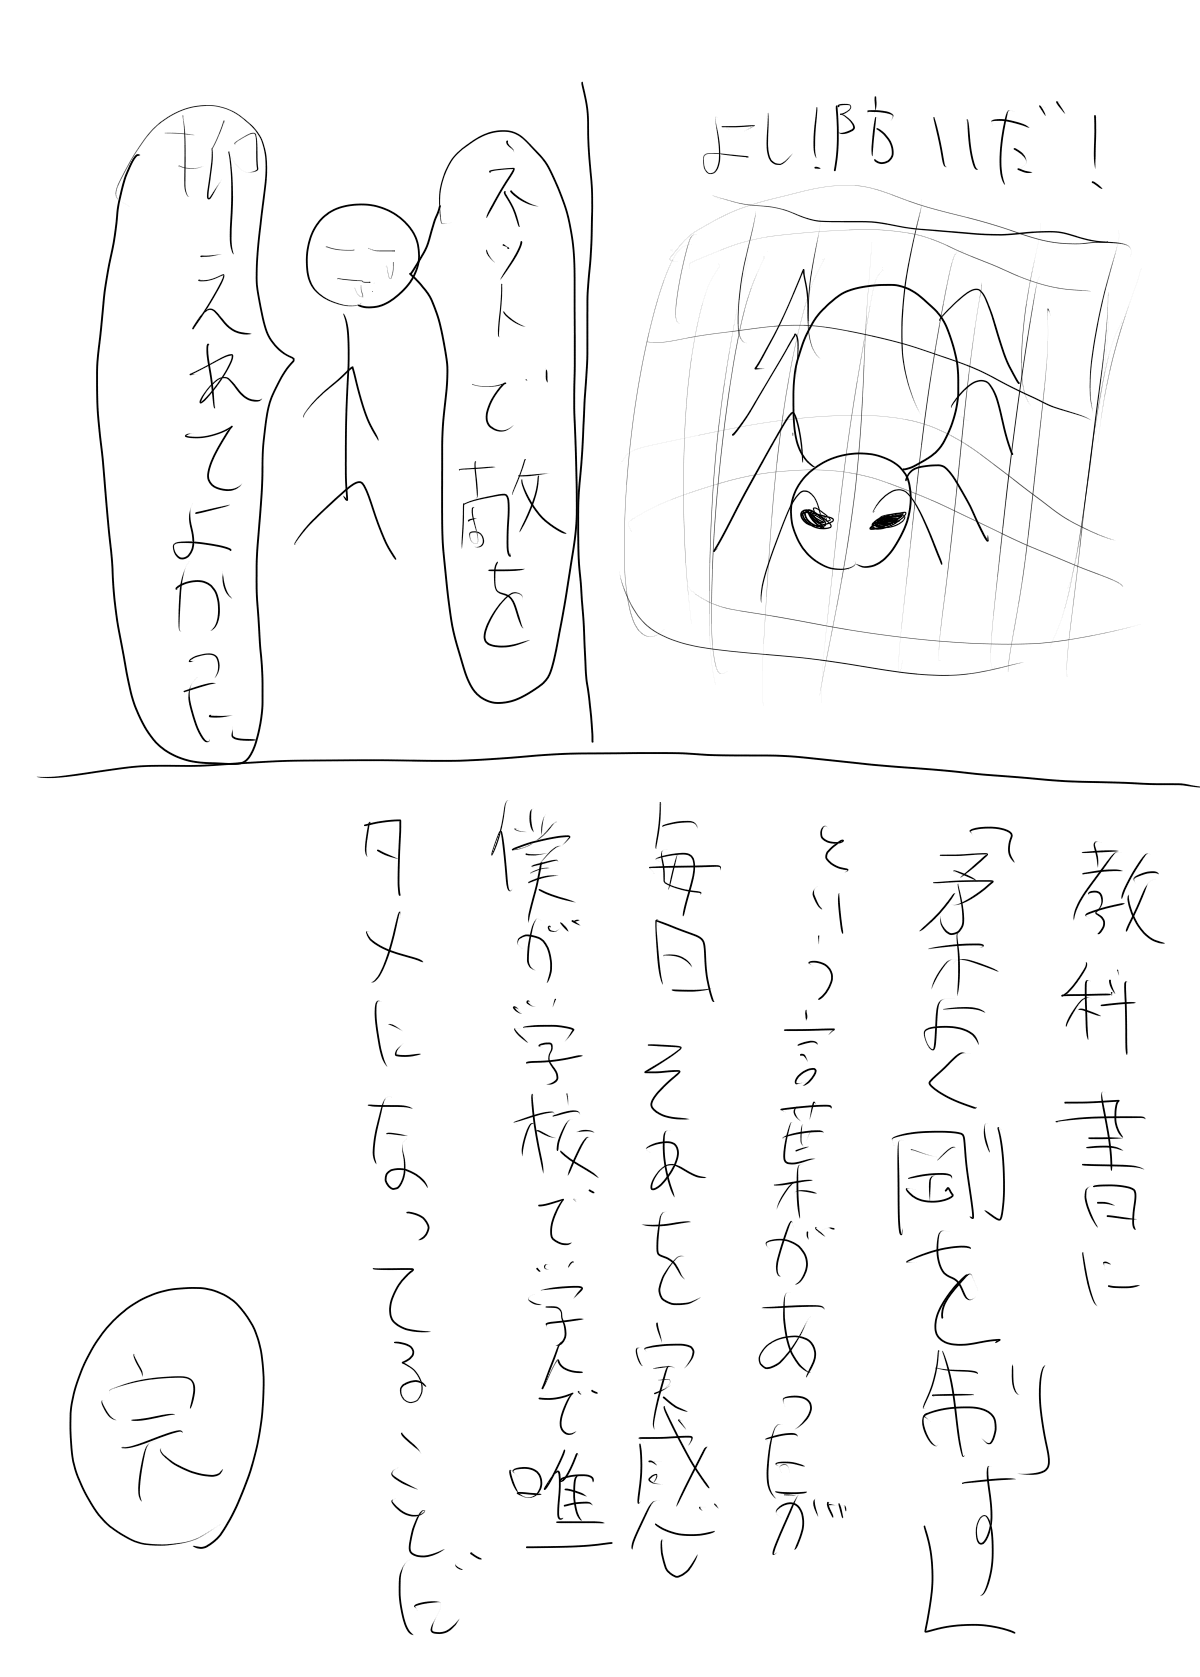 よし!防いだ!
ネットで敵を
抑えれてよかった
教科書に
「柔よく剛を制す」
という言葉があったが
毎日 それを実感し
僕が学校で学んで唯一
タメになってることだ
完